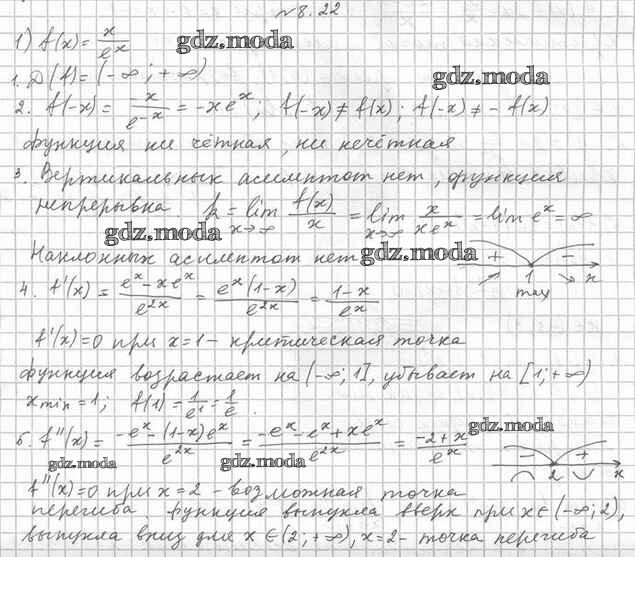 №8.22
1) f(x) = x/e^x
gdz.moda
gdz.moda
1. D(f) = (-∞; +∞)
2. f(-x) = x/e^-x = -xe^x; f(-x) ≠ f(x); f(-x) ≠ - f(x)
функция ни чётная, ни нечётная
3. Вертикальных асимптот нет, функция
непрерывна. k = lim x→∞ f(x)/x = lim x→∞ x/xe^x = lim e^x = ∞
gdz.moda
Наклонных асимптот нет
gdz.moda
+ 1 - x
max
4. f'(x) = e^x - xe^x/e^2x = e^x(1-x)/e^2x = 1-x/e^x
f'(x)=0 при x=1 - критическая точка
функция возрастает на (-∞; 1], убывает на [1; +∞)
x min = 1; f(1) = 1/e^1 = 1/e.
gdz.moda
5. f''(x) = -e^x - (1-x)e^x/e^2x = -e^x - e^x + xe^x/e^2x = -2+x/e^x
gdz.moda
gdz.moda
- 2 + x
f''(x)=0 при x=2 - возможная точка
перегиба. функция выпукла вверх при x∈(-∞; 2),
выпукла вниз для x∈(2; +∞), x=2 - точка перегиба